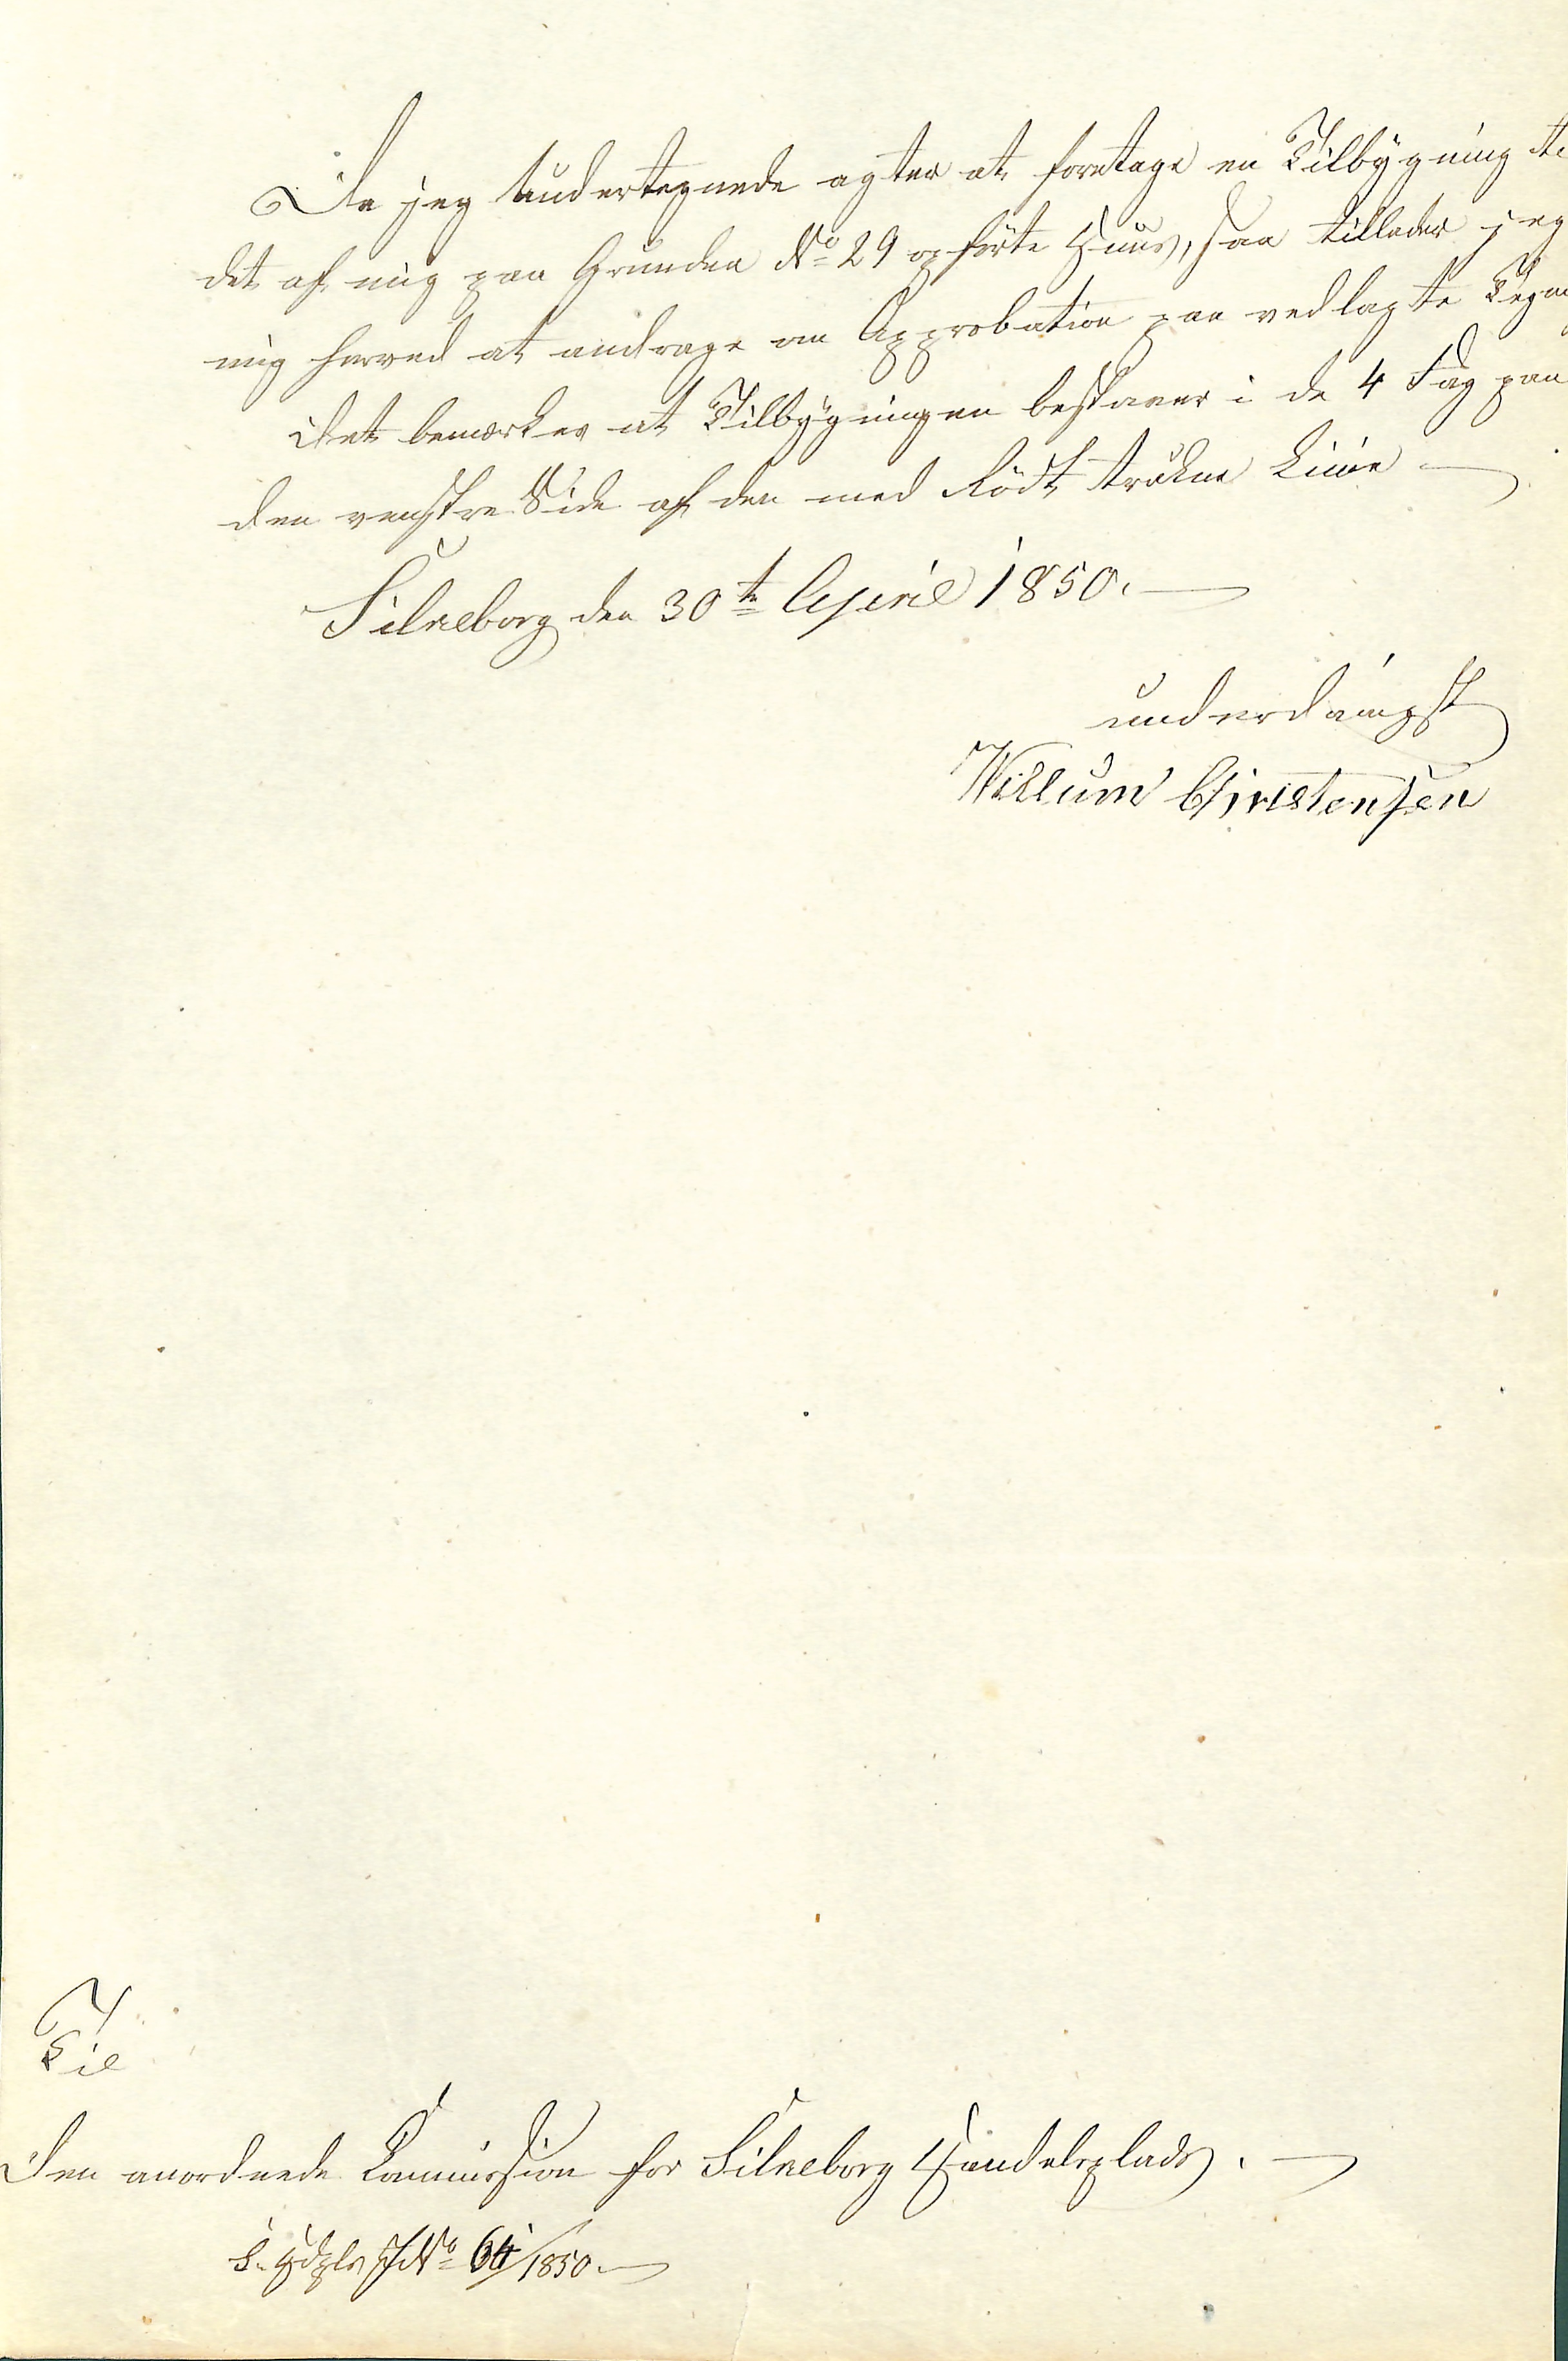 Da jeg undertegnede agter at foretage en Tilbygning ti
det af mig paa Grunden No 29 opförte Huus, saa tillader jeg
mig herved at andrage om Approbation paa vedlagte Tegn
Det bemærkes at Tilbygningen bestaaer i de 4 Fag paa
den venstre Side af den med Rödt trukne Linie
Silkeborg den 30te April 1850.
underdanigst
Willum Christensen
Til
Den anordnede Commission for Silkeborg Handelsplads.
S. Hdpls J No 64/1850.